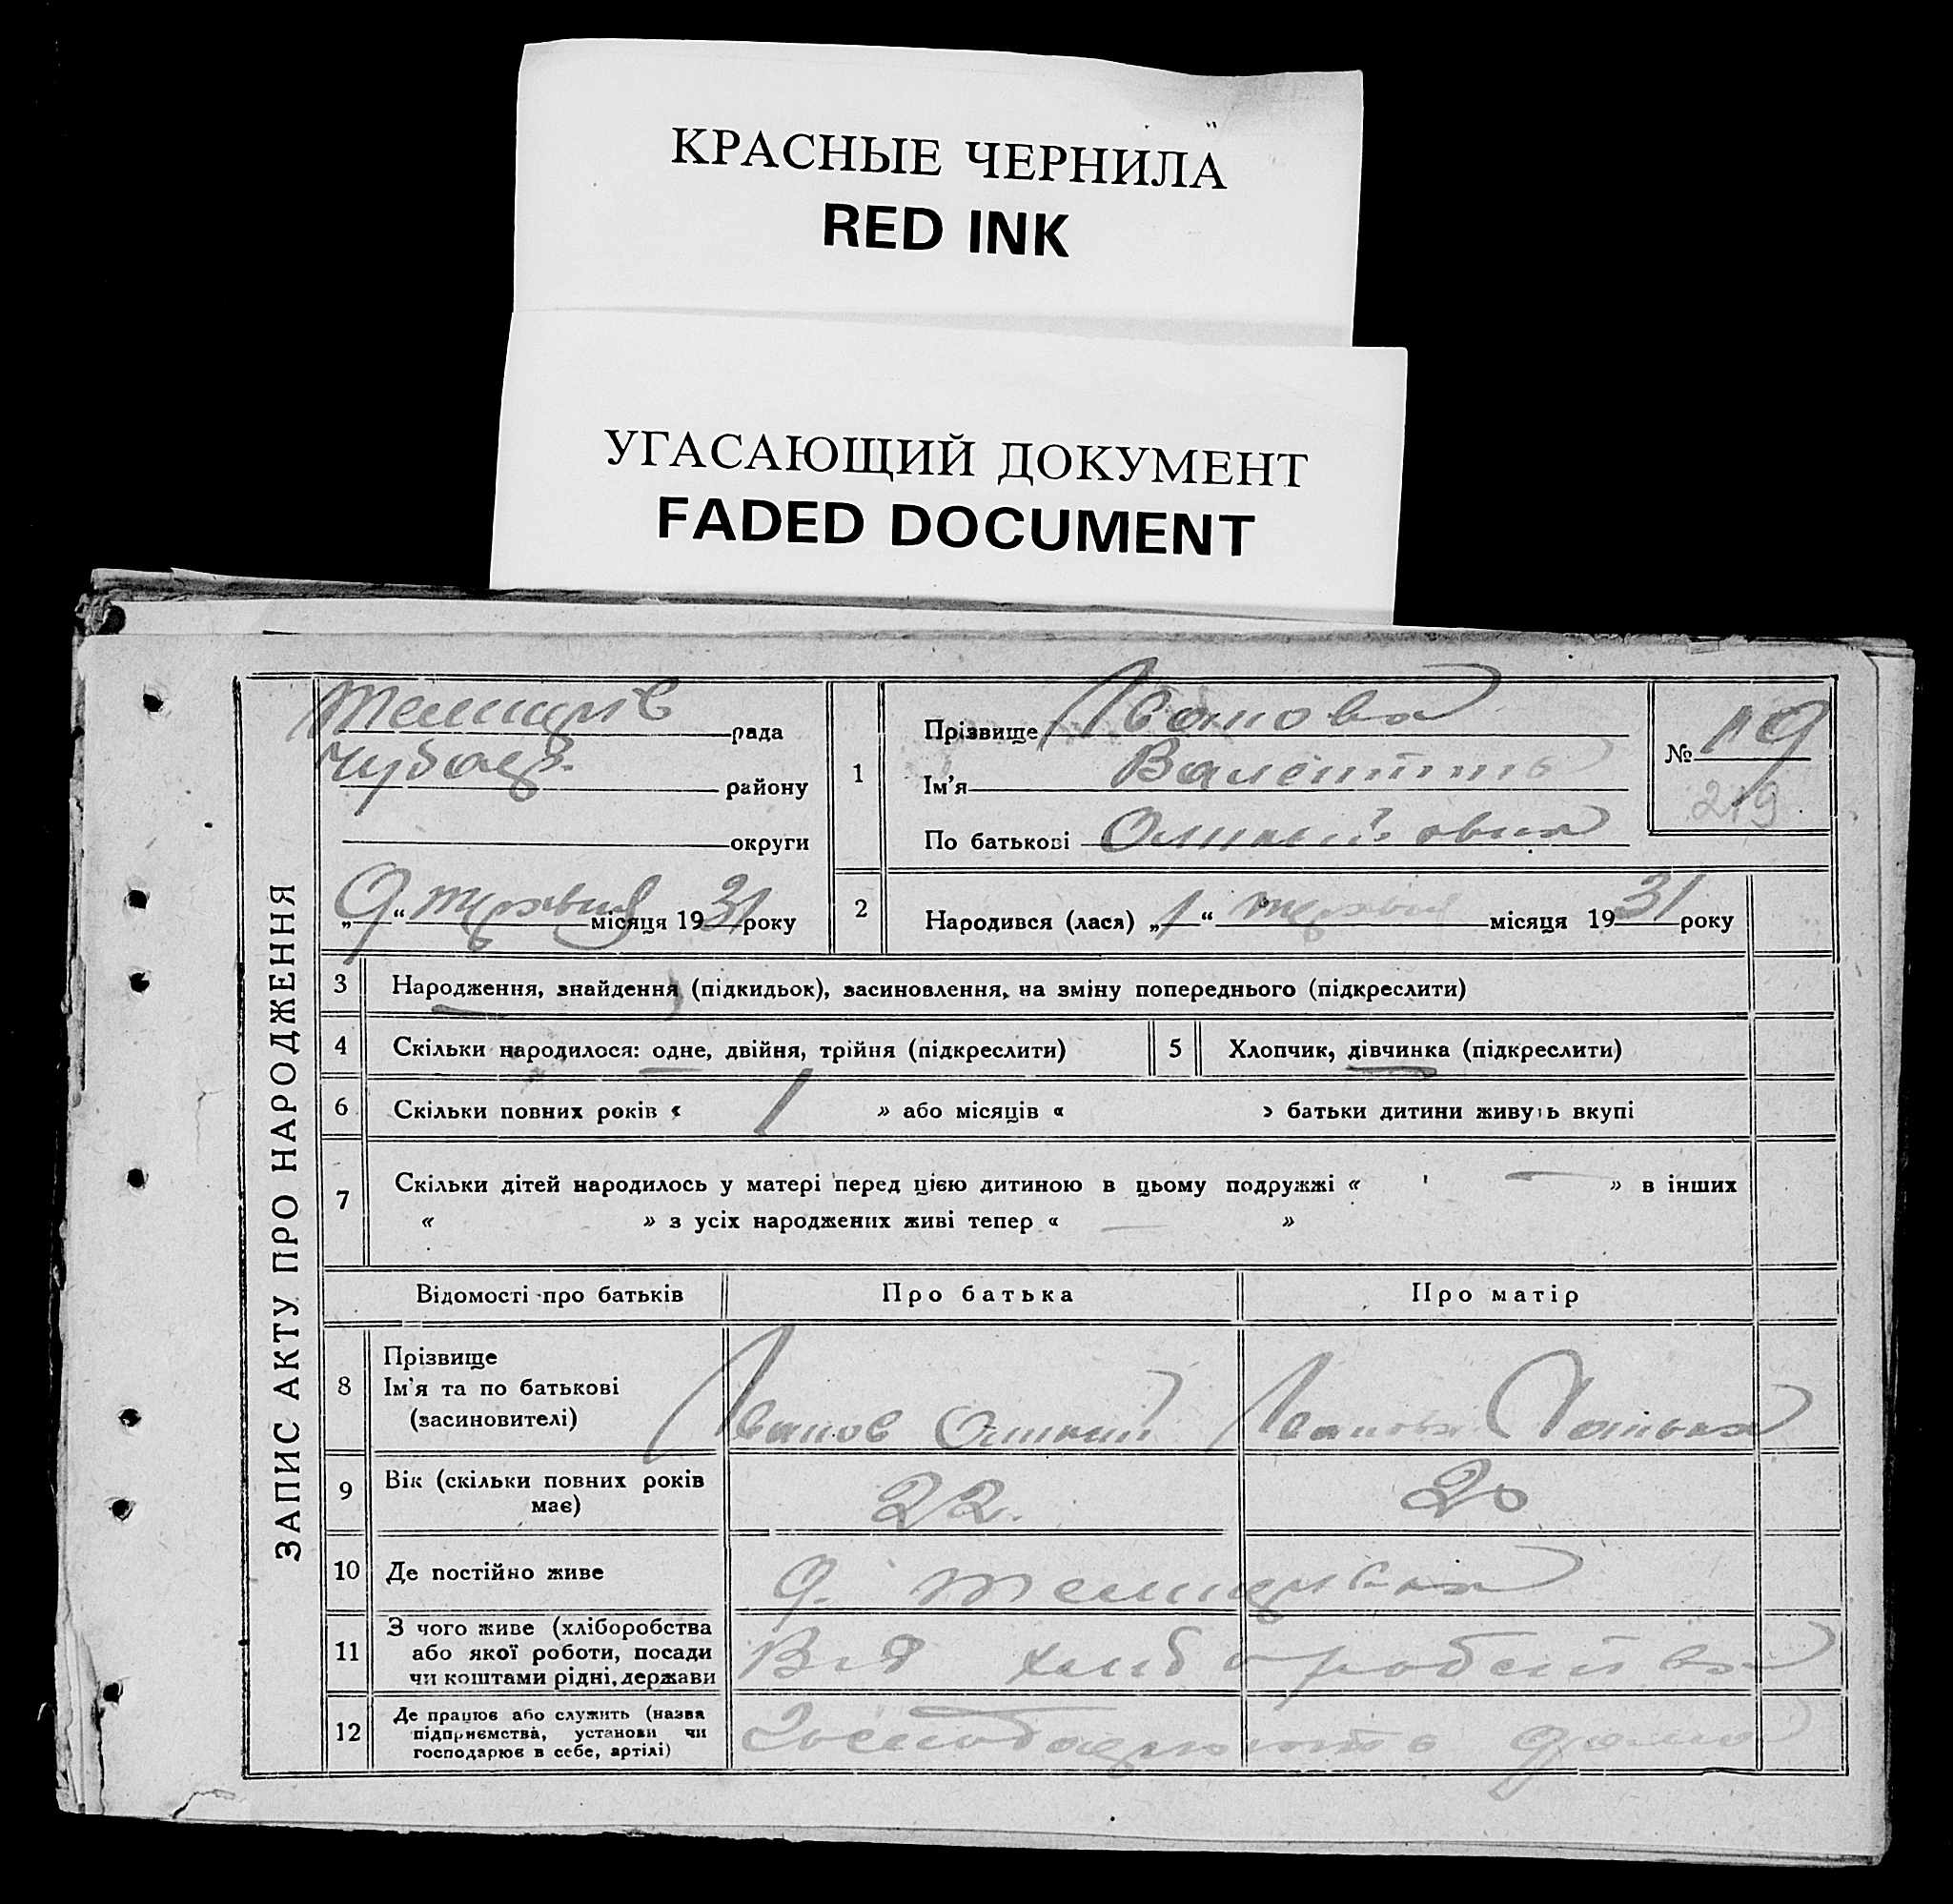 КРАСНЫЕ ЧЕРНИЛА
RED INK
УГАСАЮЩИЙ ДОКУМЕНТ
FADED DOCUMENT
ЗАПИС АКТУ ПРО НАРОДЖЕННЯ
рада
району
округи
„9“ червня місяця 1931 року
1
Прізвище Іванова
Ім'я
По батькові
№ 19
219
2 Народився (лася) „1“ червня місяця 1931 року
3 Народження, знайдення (підкидьок), засиновлення, на зміну попереднього (підкреслити)
4 Скільки народилося: одне, двійня, трійня (підкреслити) 5 Хлопчик, дівчинка (підкреслити)
6 Скільки повних років « 1 » або місяців « » батьки дитини живуть вкупі
7 Скільки дітей народилось у матері перед цією дитиною в цьому подружжі « — » в інших
« » з усіх народжених живі тепер « — »
Відомості про батьків Про батька Про матір
8 Прізвище
Ім'я та по батькові
(засиновителі)
Іванов Іванова
9 Вік (скільки повних років
має)
22. 20
10 Де постійно живе
11 З чого живе (хліборобства
або якої роботи, посади
чи коштами рідні, держави
Від хліборобства
12 Де працює або служить (назва
підприємства, установи чи
господарює в себе, артілі)
Господарюють дома